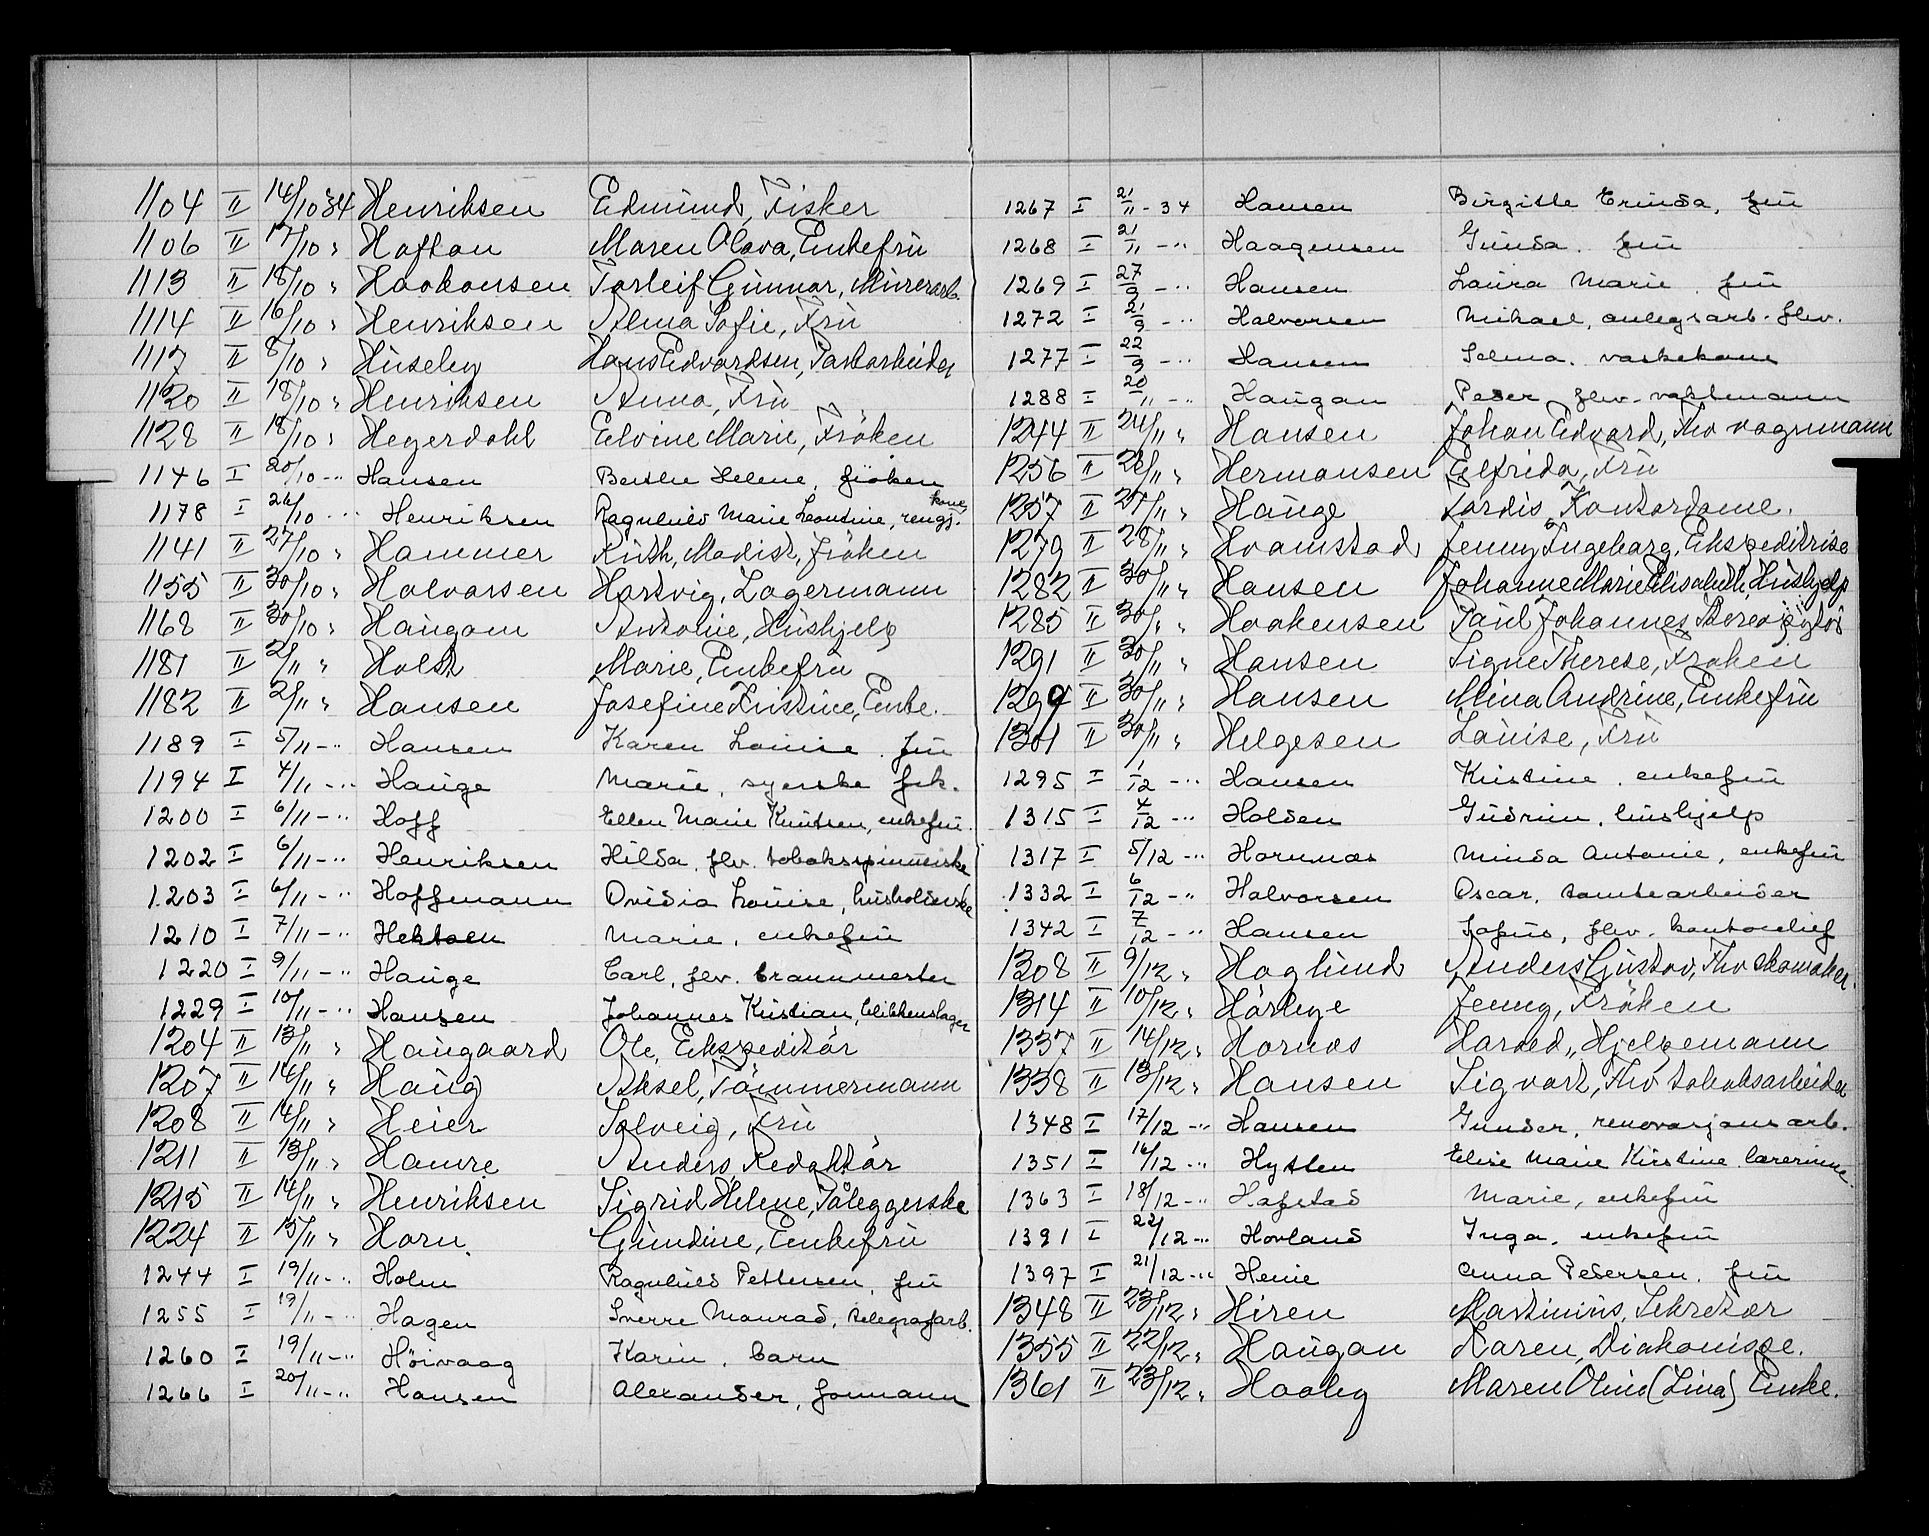 1104 II 14/10 34 Henriksen Edmund, Fisker
1106 II 17/10 " Hoftan Maren Olava, Enkefrü
1113 II 18/10 " Haakonsen Torleif Gunnar, Murerarb.
1114 II 16/10 " Henriksen Alma Sofie, Frü
1117 II 8/10 " Huseby Hans Edvardsen,
1120 II 18/10 " Henriksen Anna, Frü
1128 II 18/10 " Hegerdahl Elvine Marie, Fröken
1146 I 20/10 - " Hansen Berthe Helene, fröken
1178 I 26/10 - " Henriksen Ragnhild Marie Leontine, rengj. kone
1141 II 27/10 " Hammer Ruth, Modist, fröken
1155 II 30/10 " Halvorsen Hartvig, Lagermann
1168 II 30/10 " Haugom Antonie, Hushjelp
1181 II 2/11 " Holst Marie, Enkefrü
1182 II 2/11 " Hansen Josefine Kristine, Enke.
1189 I 5/11 - " Hansen Karen Louise. frü
1194 I 4/11 - " Hauge Marie, syerske frk.
1200 I 6/11 - " Hoff Ellen Marie Knutsen, enkefrü.
1202 I 6/11 - " Henriksen Hilda, flv. tobakspinnerske
1203 I 6/11 - " Hoffmann Ovidia Louise, husholderske
1210 I 7/11 - " Hektoen Marie, enkefrü
1220 I 9/11 - " Hauge Carl, flv. brannmester
1229 I 10/11 - " Hansen Johannes Kristian, blikkenslager
1204 II 13/11 " Haugaard Ole, Ekspeditör
1207 II 14/11 " Haug Aksel, Tömmermann
1208 II 14/11 " Heier Solveig, Frü
1211 II 13/11 " Hamre Anders, Redaktör
1215 II 14/11 " Henriksen Sigrid Helene, Påleggerske
1224 II 15/11 " Horn Gundine, Enkefrü
1244 I 19/11 - " Holm Ragnhild Pettersen, frü
1255 I 19/11 - " Hagen Sverre Monrad, telegrafarb.
1260 I 19/11 - " Höivaag Karin, barn
1266 I 20/11 - " Hansen Alexander, formann
1267 I 21/11 - 34 Hansen Birgitte Erinda, frü
1268 I 21/11 - " Haagensen Gunda. frü
1269 I 27/9 - " Hansen Laura Marie, frü
1272 I 21/9 - " Halvorsen Mikael, anlegsarb. flv.
1277 I 22/9 - " Hansen Selma. vaskekone
1288 I 20/11 - " Haugan Peder flv. vaktmann
1244 II 24/11 " Hansen Johan Edvard, fhv vognmann
1256 II 26/11 " Hermansen Elfrida, Frü
1257 II 27/11 " Hauge Tordis, Kontordame.
1279 II 28/11 " Hvamstad Jenny Ingeborg, Ekspeditrise
1282 II 30/11 " Hansen Johanne Marie Elisabeth, Hushjelp
1285 II 30/11 " Haakensen Paul Johannes
1291 II 30/11 " Hansen Signe Therese, Fröken
1299 II 30/11 " Hansen Mina Andrine, Enkefrü
1301 II 30/11 " Helgesen Louise, Frü
1295 I 1/12 - " Hansen Kristine. enkefrü
1315 I 4/12 - " Holden Gudrun, hushjelp
1317 I 5/12 - " Hornnæs Minda Antonie, enkefrü
1332 I 6/12 - " Halvorsen Oscar, tomtearbeider
1342 I 7/12 - " Hansen Sofus, flv. kontorchef
1308 II 9/12 " Haglund Anders Gustav, fhv skomaker.
1314 II 10/12 " Hörbye Jenny, Fröken
1337 II 14/12 " Hornæs Harald, Hjelpemann
1338 II 13/12 " Hansen Sigvart, fhv tobaksarbeider
1348 I 17/12 - " Hansen Gunder, renovasjons arb.
1351 I 16/12 - " Hytten Elise Marie Kirstine lærerinne.
1363 I 18/12 - " Hafstad Marie, enkefrü
1391 I 22/12 - " Hovland Inga. enkefrü
1397 I 21/12 - " Henie Anna Pedersen. frü
1348 II 23/12 " Hiren Martinius, Sekretær
1355 II 22/12 " Haugan Karen, Diakonisse.
1361 II 23/12 " Haaby Maren Oline (Lina) Enke.